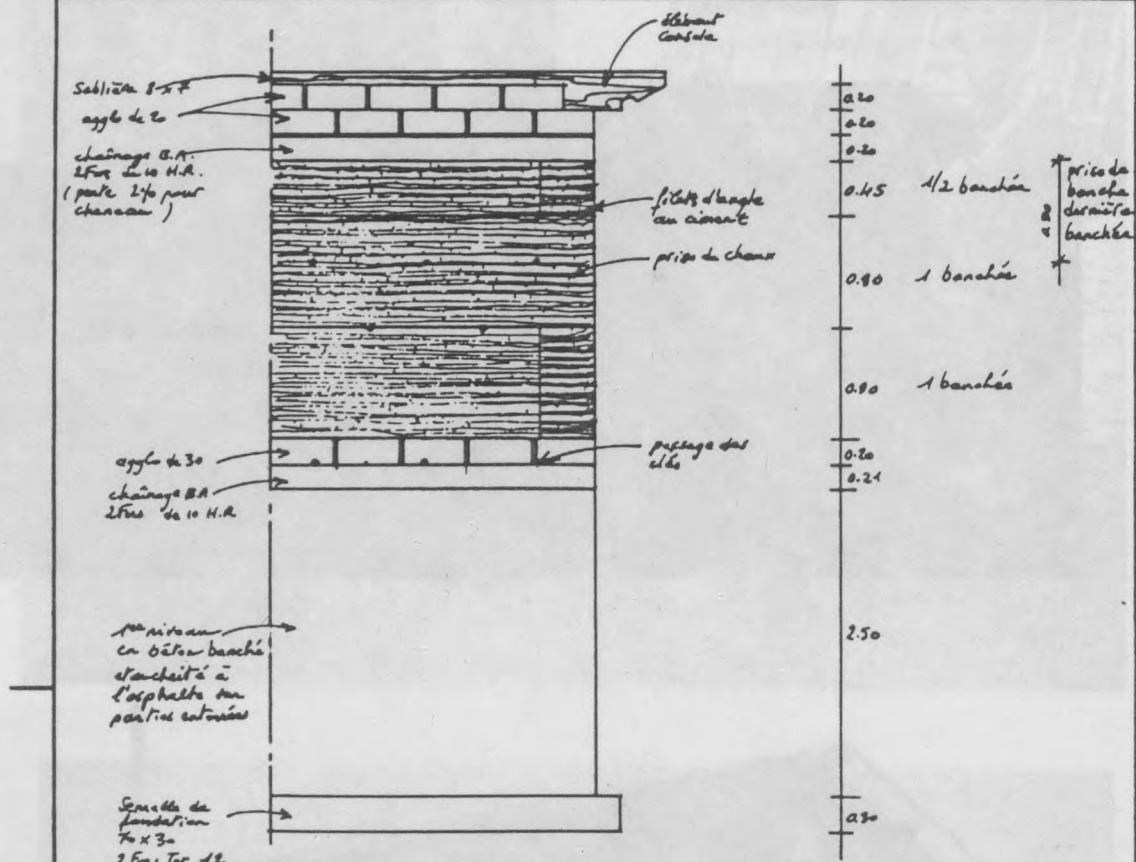 élément
console
Sablière 8 x 7
agglo de 20
chaînage B.A.
2 Fers de 10 H.R.
(pente 2% pour
cheneau)
filets d'angle
au ciment
prise de chaux
agglo de 30
chaînage B.A
2 Fers de 10 H.R
passage des
clés
1er niveau
en béton banché
étanchéité à
l'asphalte sur
parties enterrées
Semelle de
fondation
70 x 30
2 Fers Tor 12
0.20
0.20
0.20
0.45 1/2 banchée
0.90 1 banchée
0.90 1 banchée
0.20
0.21
2.50
0.30
prise de
banche
dernière
banchée